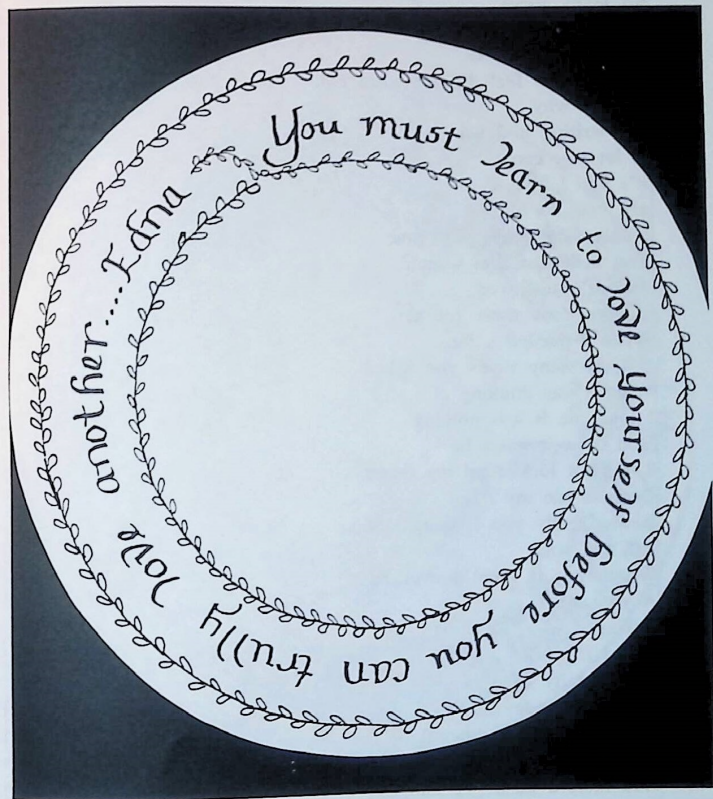 You must learn to love yourself before you can trully love another.....Edna